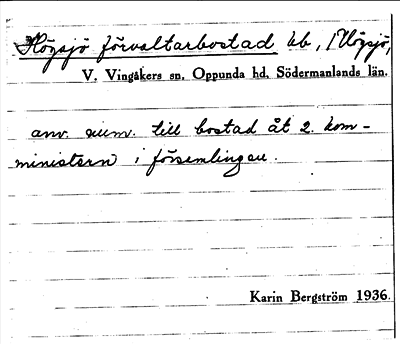 Högsjö förvaltarbostad bb, /Högsjö,
V. Vingåkers sn. Oppunda hd. Södermanlands län.
anv. num. till bostad åt 2. kom-
ministern i församlingen.
Karin Bergström 1936.